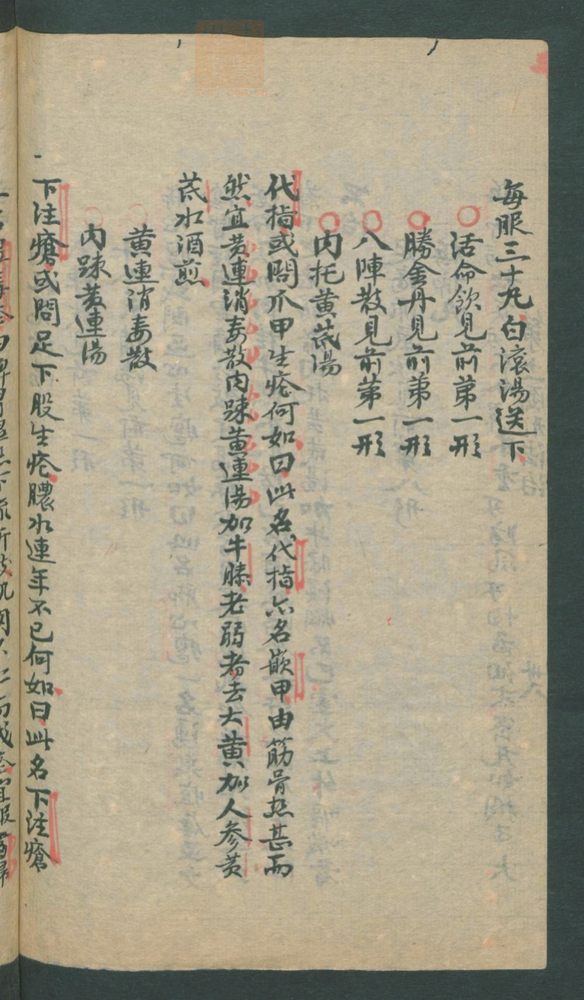 每服三十丸白滾湯送下
活命飲見前第一形
勝金丹見前第一形
八陣散見前第一形
內托黃芪湯
代指或問爪甲生疮何如曰此名代指亦名嵌甲由筋骨热甚而
然宜黄連消毒散内踈黄連湯加牛膝老弱者去大黄加人參黄
芪水酒煎
黄連消毒散
内踈黄連湯
下注瘡或問足下股生疮膿水連年不已何如曰此名下注瘡